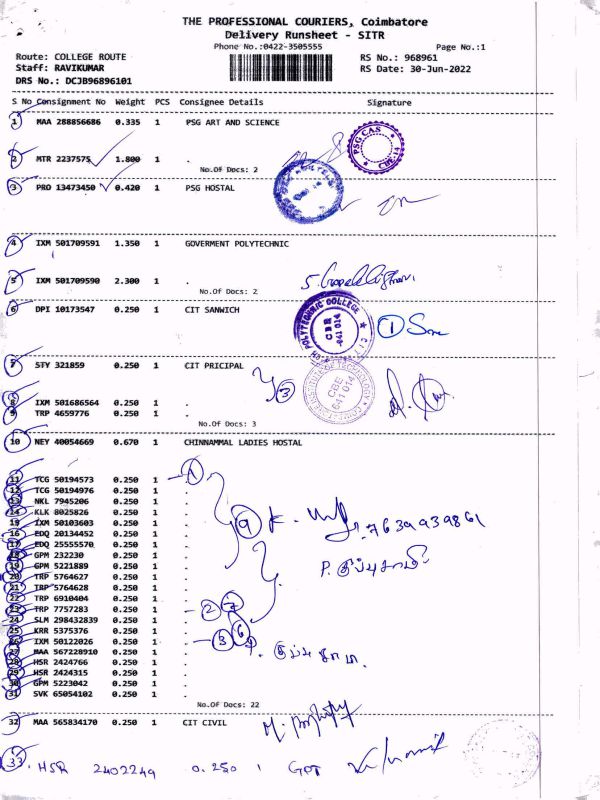 THE PROFESSIONAL COURIERS, Coimbatore
Delivery Runsheet - SITR
Phone No.:0422-3505555 Page No.:1
Route: COLLEGE ROUTE RS No.: 968961
Staff: RAVIKUMAR RS Date: 30-Jun-2022
DRS No.: DCJB96896101
S No Consignment No Weight PCS Consignee Details Signature
1 MAA 288856686 0.335 1 PSG ART AND SCIENCE
PSG CAS
CBE-14
2 MTR 2237575 1.800 1 .
No.Of Docs: 2
3 PRO 13473450 0.420 1 PSG HOSTAL
4 IXM 501709591 1.350 1 GOVERMENT POLYTECHNIC
5 IXM 501709590 2.300 1 .
No.Of Docs: 2
6 DPI 10173547 0.250 1 CIT SANWICH
POLYTECHNIC COLLEGE
CBE
641 014
1
7 STY 321859 0.250 1 CIT PRICIPAL
3
CBE
641 014
8 IXM 501686564 0.250 1 .
9 TRP 4659776 0.250 1 .
No.Of Docs: 3
10 NEY 40054669 0.670 1 CHINNAMMAL LADIES HOSTAL
11 TCG 50194573 0.250 1 . 1
12 TCG 50194976 0.250 1 .
13 NKL 7945206 0.250 1 .
14 KLK 8025826 0.250 1 .
15 IXM 50103603 0.250 1 . 9 7639939861
16 EDQ 20134452 0.250 1 .
17 EDQ 25555570 0.250 1 .
18 GPM 232230 0.250 1 .
19 GPM 5221889 0.250 1 .
20 TRP 5764627 0.250 1 .
21 TRP 5764628 0.250 1 .
22 TRP 6910404 0.250 1 .
23 TRP 7757283 0.250 1 . 2 7
24 SLM 298432839 0.250 1 .
25 KRR 5375376 0.250 1 .
26 IXM 50122026 0.250 1 . 3 6
27 MAA 567228910 0.250 1 .
28 HSR 2424766 0.250 1 .
29 HSR 2424315 0.250 1 .
30 GPM 5223042 0.250 1 .
31 SVK 65054102 0.250 1 .
No.Of Docs: 22
32 MAA 565834170 0.250 1 CIT CIVIL
33. HSR 2402249 0.250 1 GPT